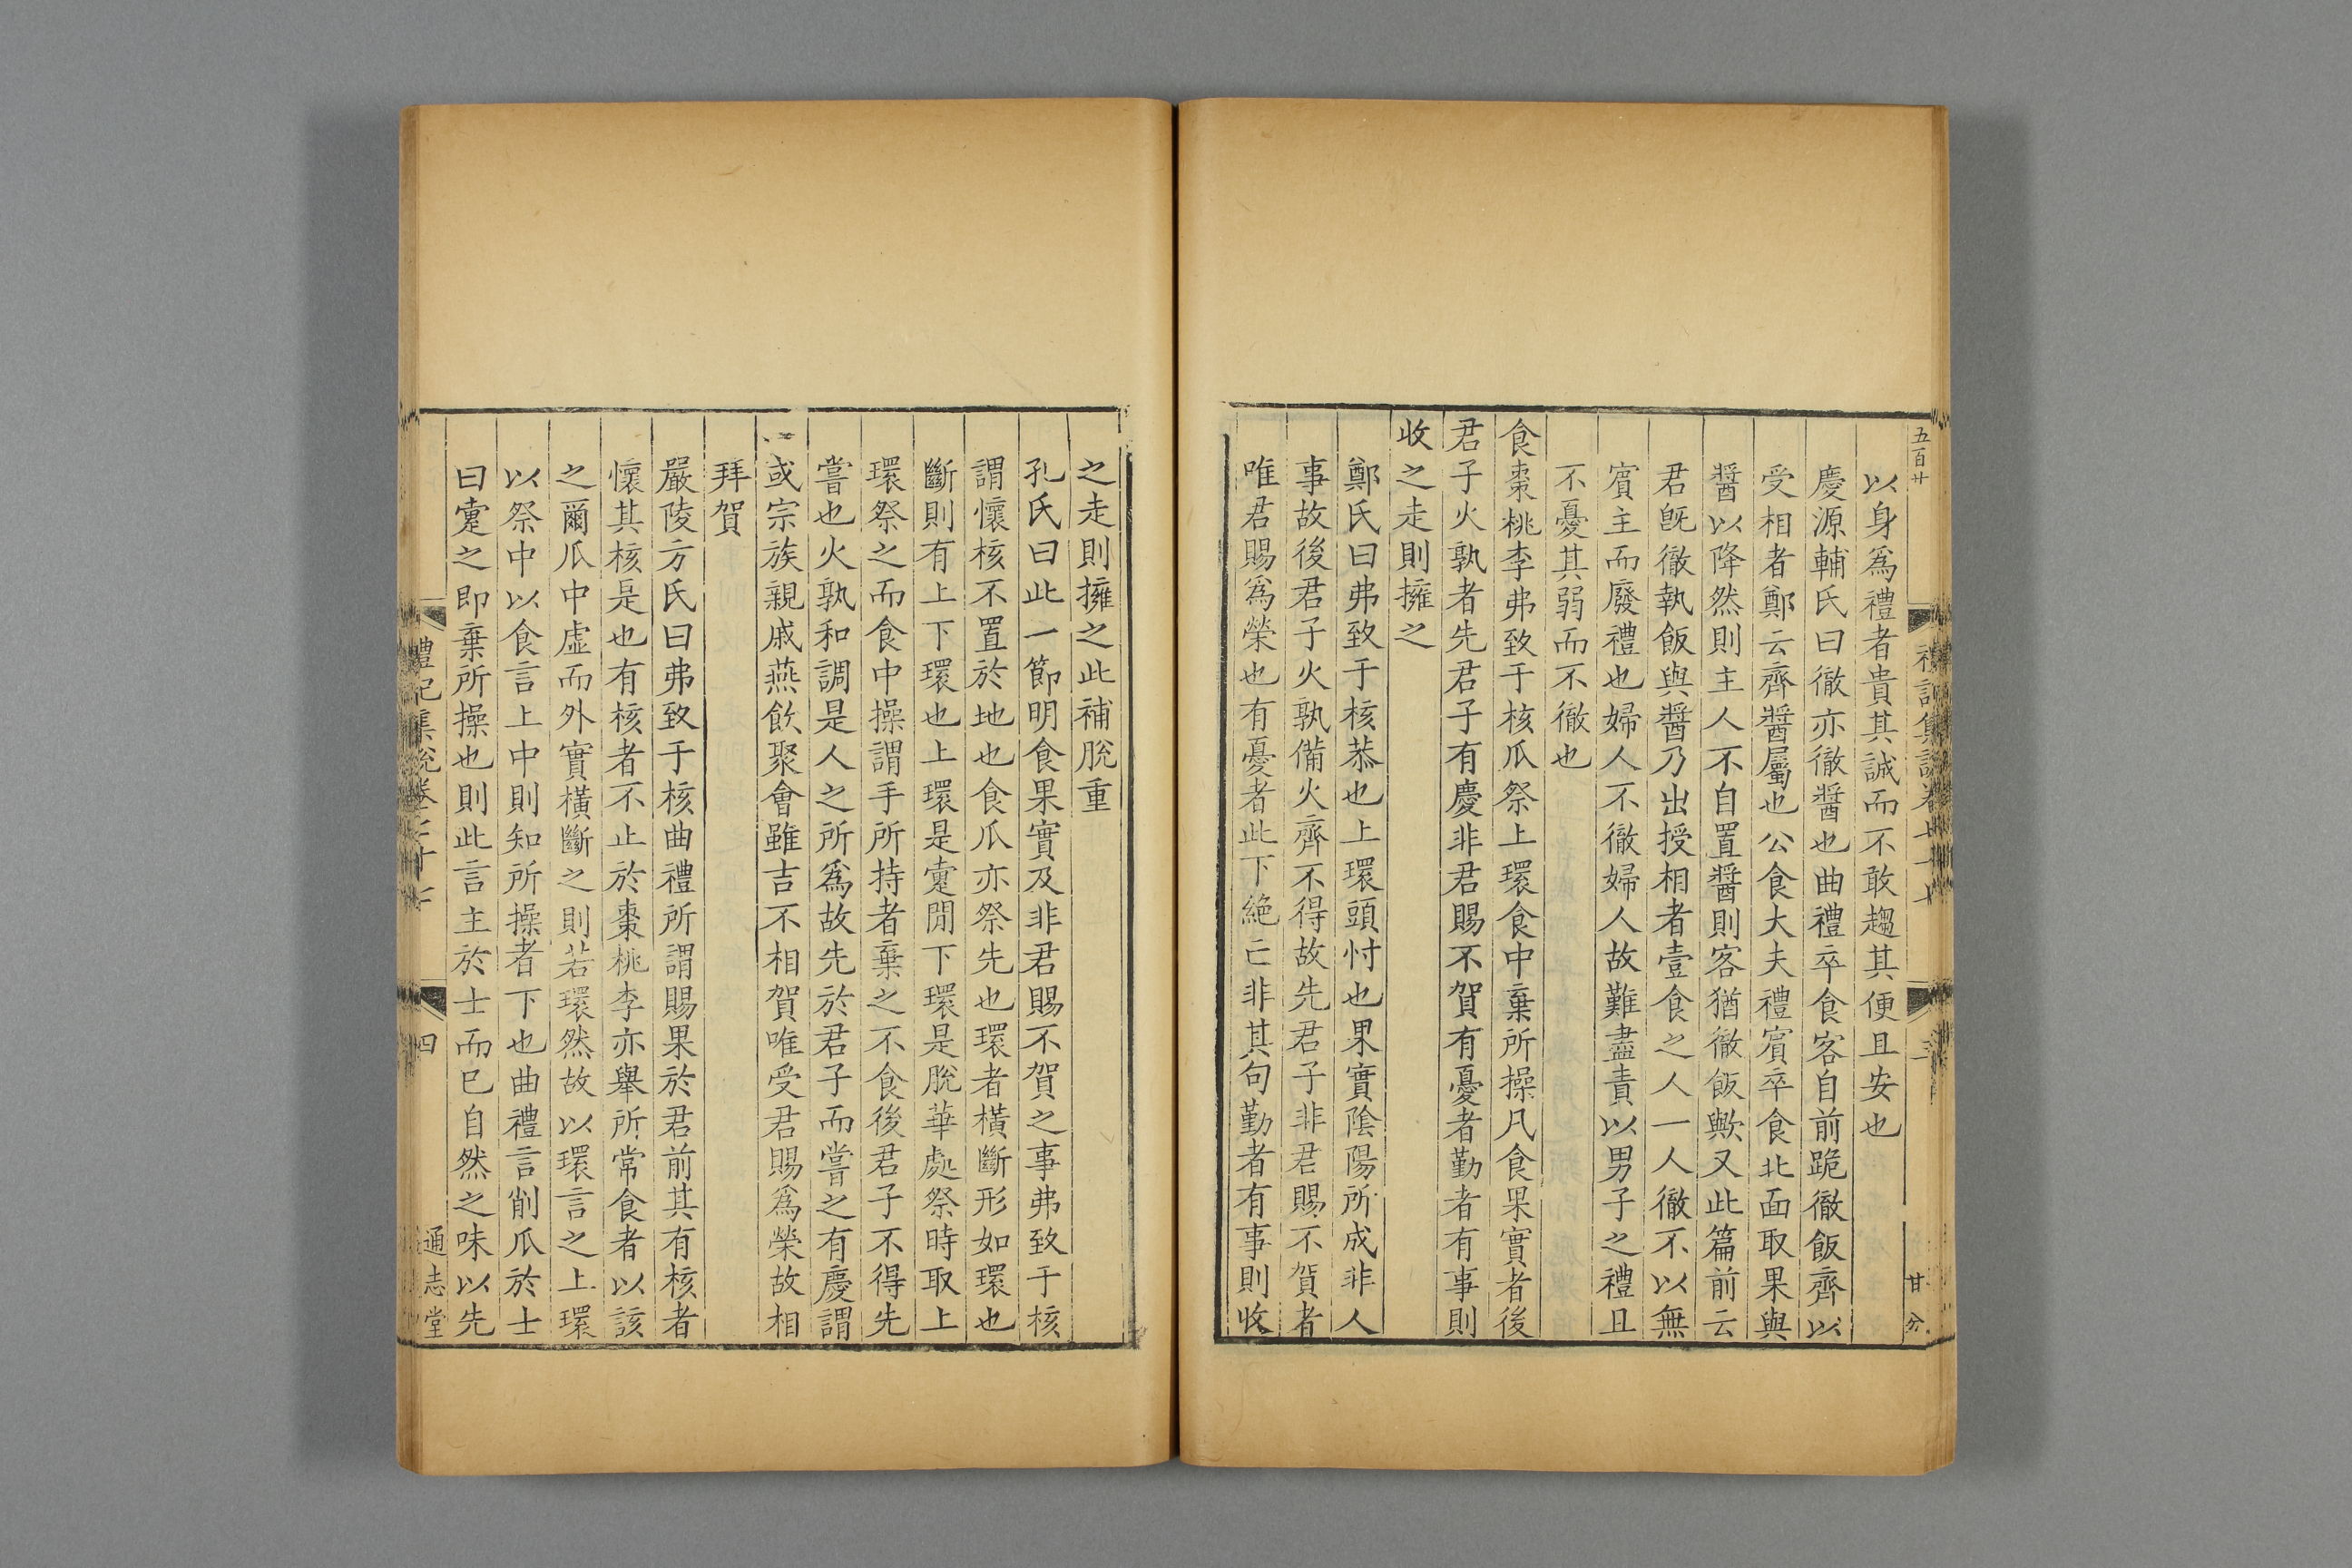 五百廿
以身爲禮者貴其誠而不敢趨其便且安也
慶源輔氏曰徹亦徹醬也曲禮卒食客自前跪徹飯齊以
受相者鄭云齊醬屬也公食大夫禮賓卒食北面取果與
醬以降然則主人不自置醬則客猶徹飯歟又此篇前云
君旣徹執飯與醬乃出授相者壹食之人一人徹不以無
賓主而廢禮也婦人不徹婦人故難盡責以男子之禮且
不憂其弱而不徹也
食棗桃李弗致于核瓜祭上環食中棄所操凡食果實者後
君子火孰者先君子有慶非君賜不賀有憂者勤者有事則
收之走則擁之
鄭氏曰弗致于核恭也上環頭忖也果實陰陽所成非人
事故後君子火孰備火齊不得故先君子非君賜不賀者
唯君賜爲榮也有憂者此下絶亡非其句勤者有事則收
之走則擁之此補脫重
孔氏曰此一節明食果實及非君賜不賀之事弗致于核
謂懷核不置於地也食瓜亦祭先也環者橫斷形如環也
斷則有上下環也上環是疐閒下環是脫華處祭時取上
環祭之而食中操謂手所持者棄之不食後君子不得先
嘗也火孰和調是人之所爲故先於君子而嘗之有慶謂
或宗族親戚燕飮聚會雖吉不相賀唯受君賜爲榮故相
拜賀
嚴陵方氏曰弗致于核曲禮所謂賜果於君前其有核者
懷其核是也有核者不止於棗桃李亦舉所常食者以該
之爾瓜中虛而外實橫斷之則若環然故以環言之上環
以祭中以食言上中則知所操者下也曲禮言削瓜於士
曰疐之即棄所操也則此言主於士而已自然之味以先
禮記集說卷七十七
四
通志堂